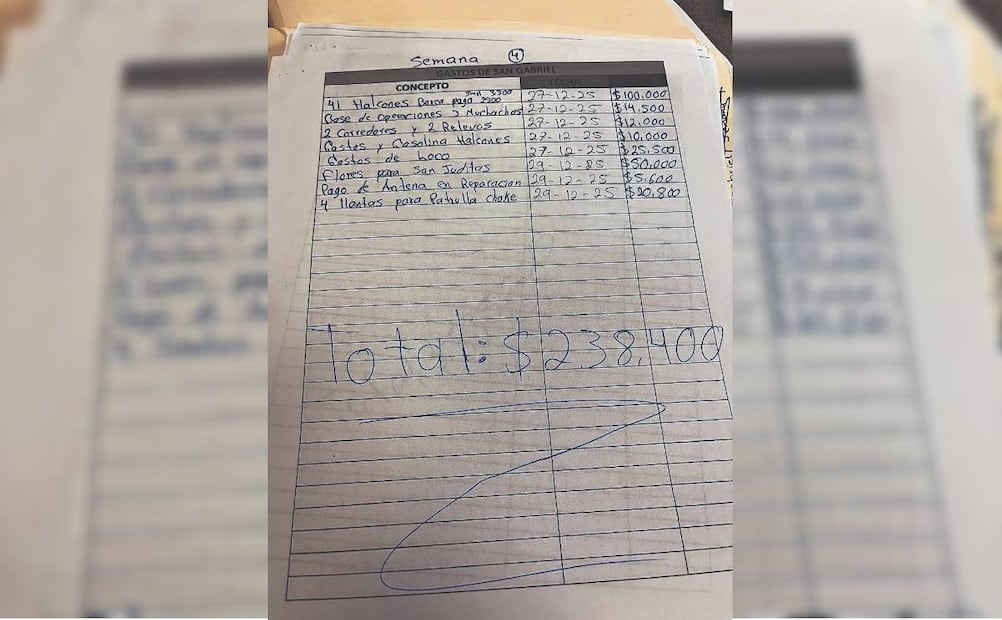 Semana 4
GASTOS DE SAN GABRIEL
CONCEPTO FECHA
3500
41 Halcones Barca pago 2500 27-12-25 $100,000
Base de operaciones 3 Muchachos 27-12-25 $14,500
2 Corredores y 2 Relevos 27-12-25 $12,000
Gastos y Gasolina Halcones 27-12-25 $10,000
Gastos de Loco 27-12-25 $25,500
Flores para San Juditas 29-12-85 $50,000
Pago de Antena en Reparacion 29-12-25 $5,600
4 llantas para Patrulla choke 29-12-25 $20,800
Total: $238,400